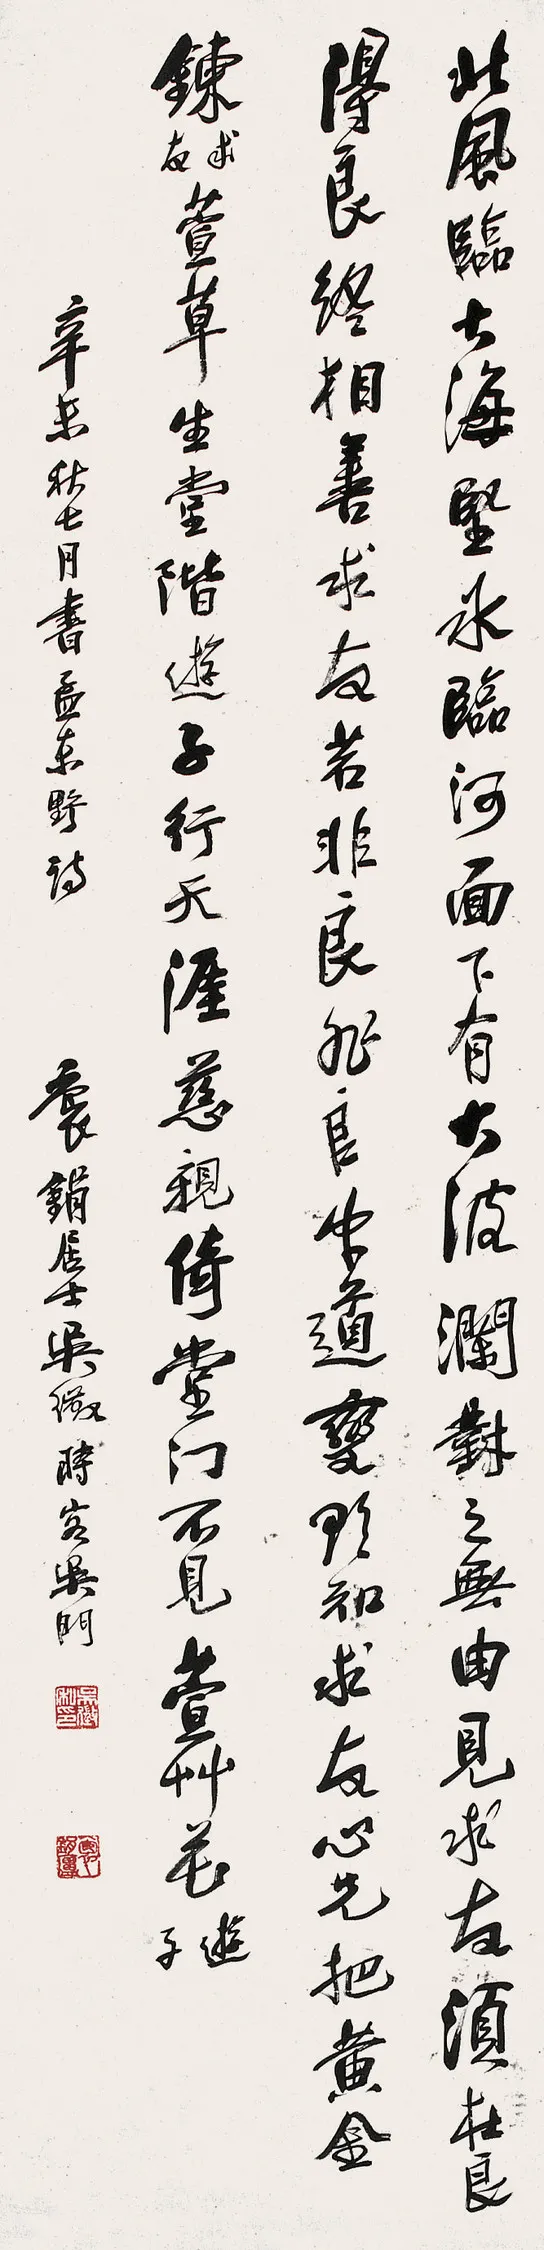 北風臨大海堅氷臨河面下有大波瀾對之無由見求友須在良
得良終相善求友若非良非良中道變欲知求友心先把黃金
鍊求友萱草生堂階遊子行天涯慈親倚堂門不見萱艸花遊子
辛未秋七月書孟東野詩 褱鋗居士吳徵時客吳門
吳徵私印